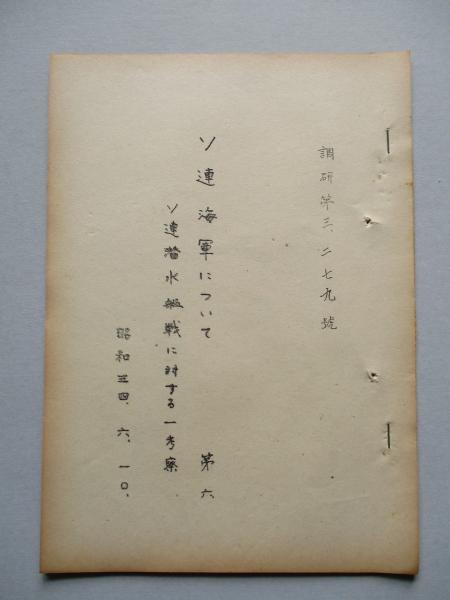 調研第三、二七九號
ソ連海軍について 第六
ソ連潜水艦戦に対する一考察
昭和三四、六、一〇、